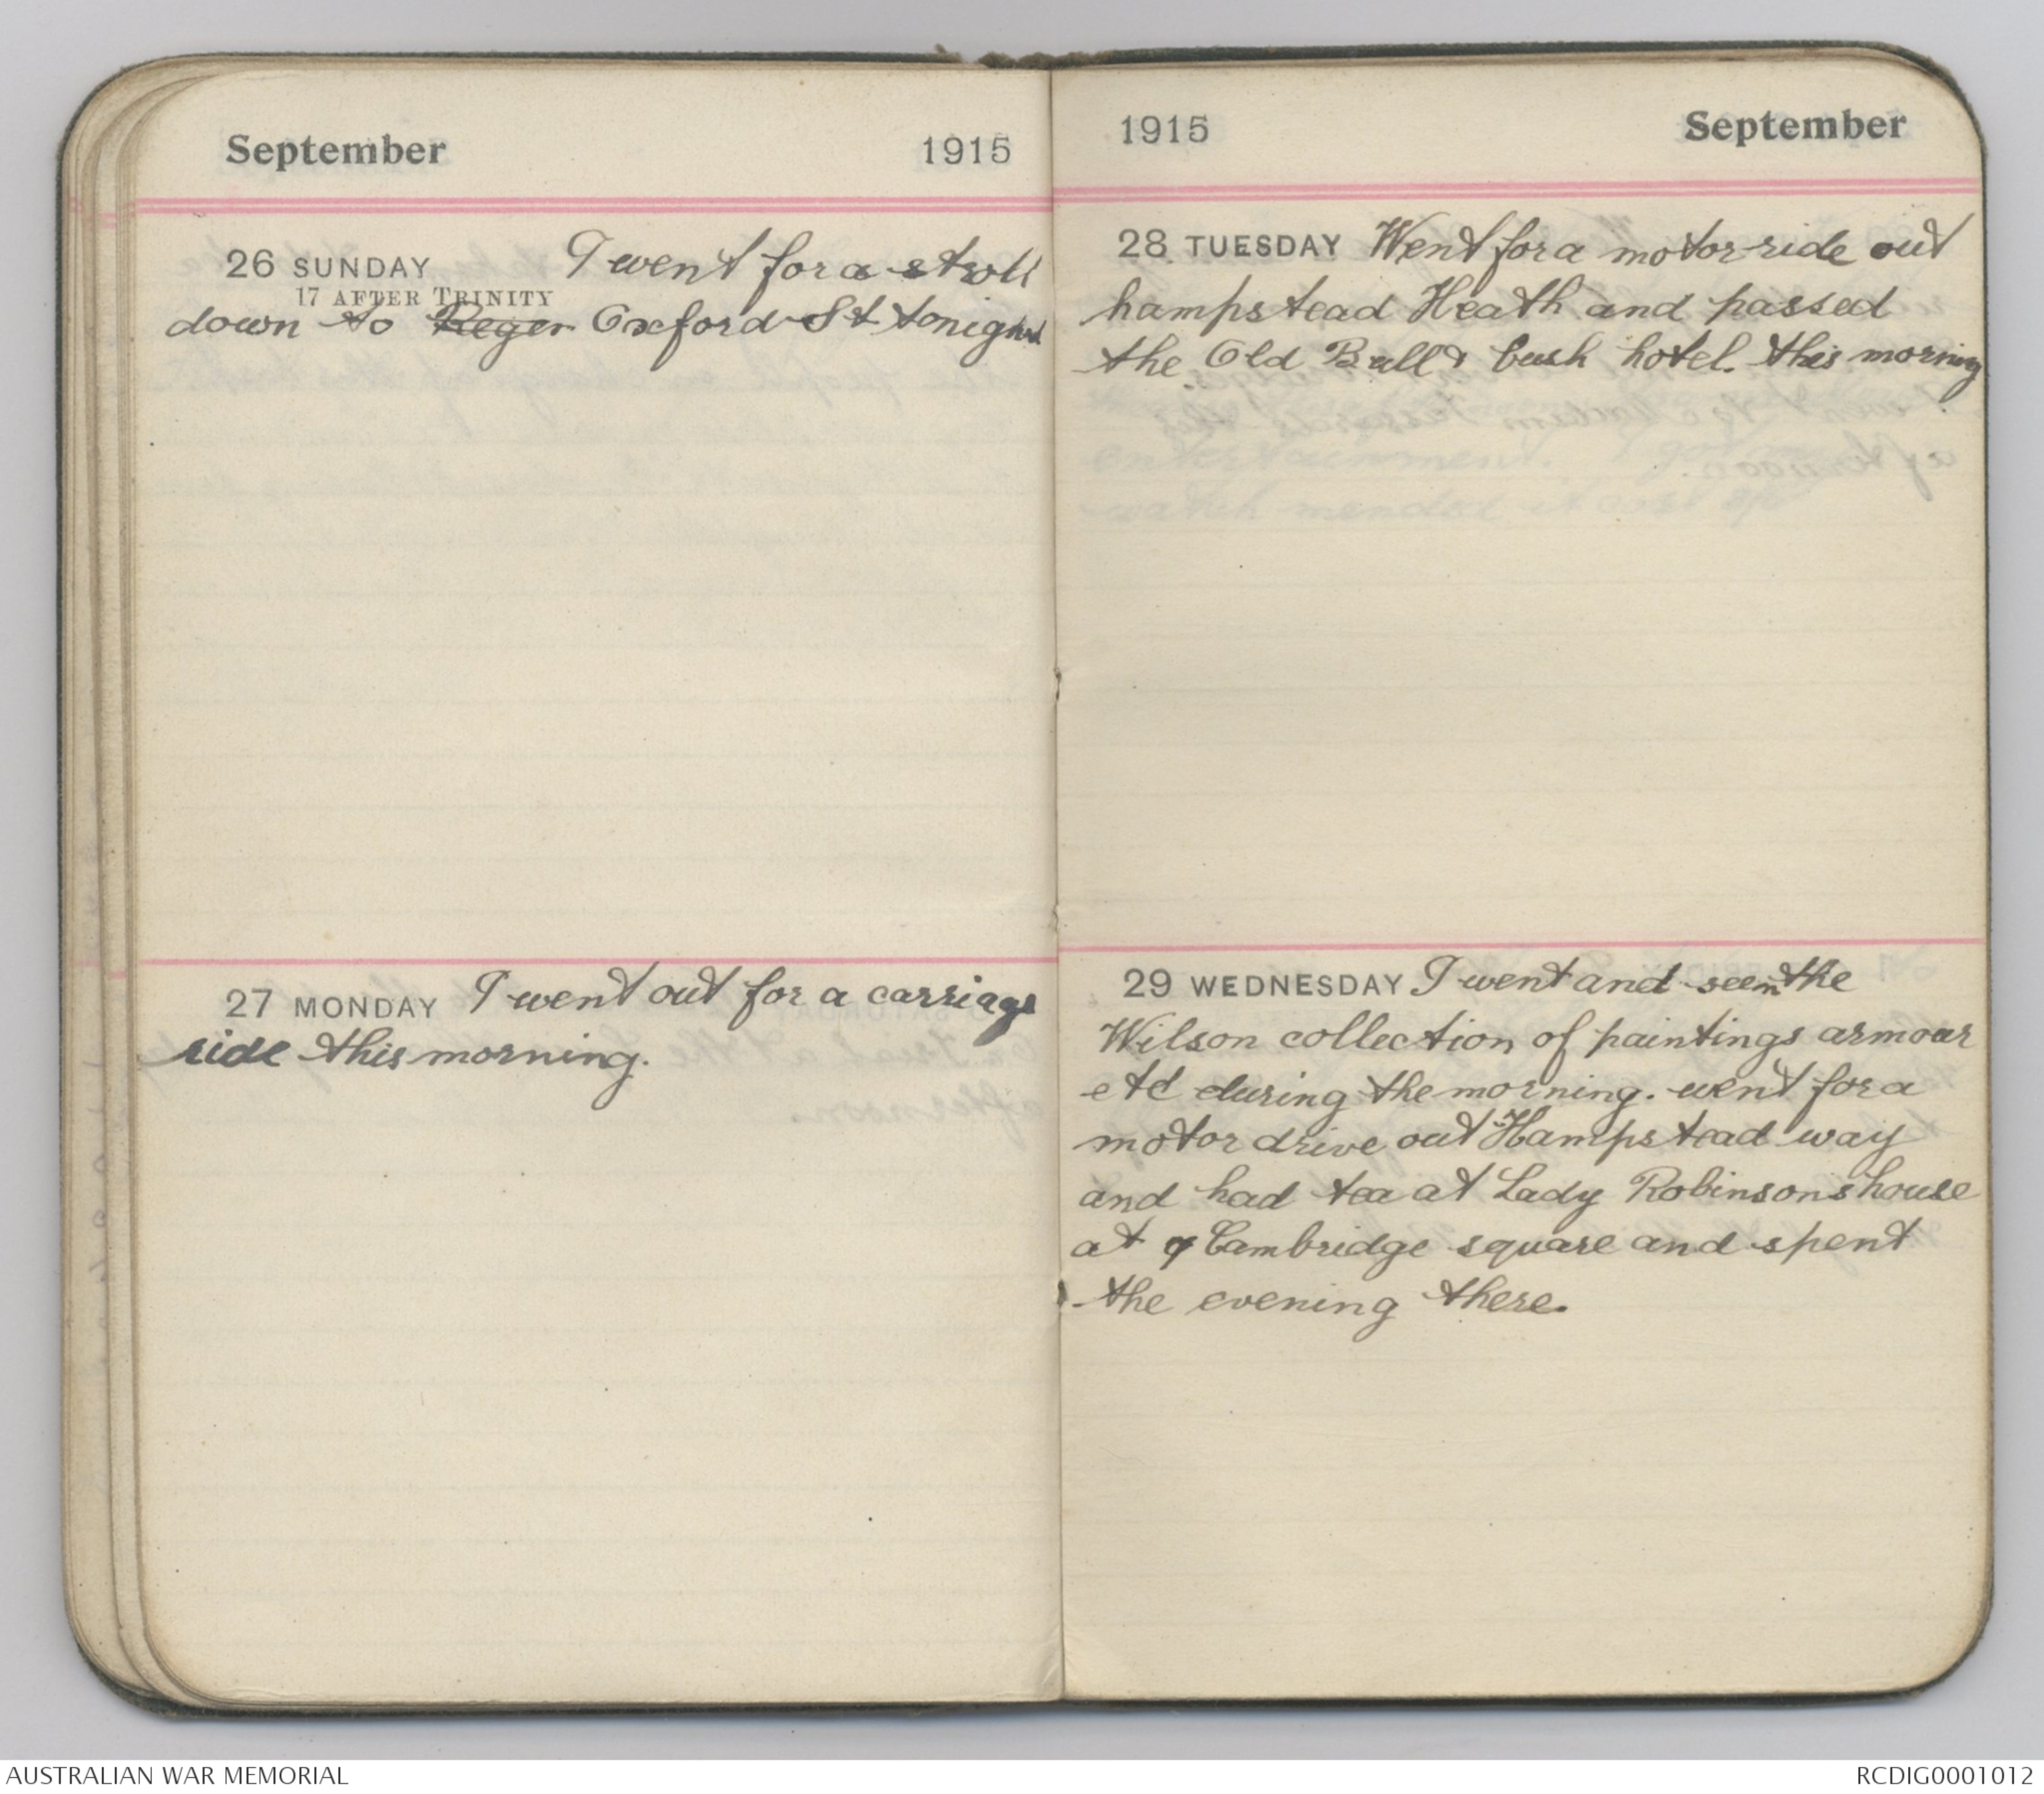 September 1915
26 SUNDAY I went for a stroll
17 AFTER TRINITY
down to Reger Oxford St tonight
27 MONDAY I went out for a carriage
ride this morning.
1915 September
28 TUESDAY Went for a motor-ride out
hampstead Heath and passed
the Old Bull & bush hotel. this morning
29 WEDNESDAY I went and seen the
Wilson collection of paintings armour
etc during the morning. went for a
motor drive out Hampstead way
and had tea at Lady Robinsons house
at 9 Cambridge square and spent
the evening there.
AUSTRALIAN WAR MEMORIAL
RCDIG0001012